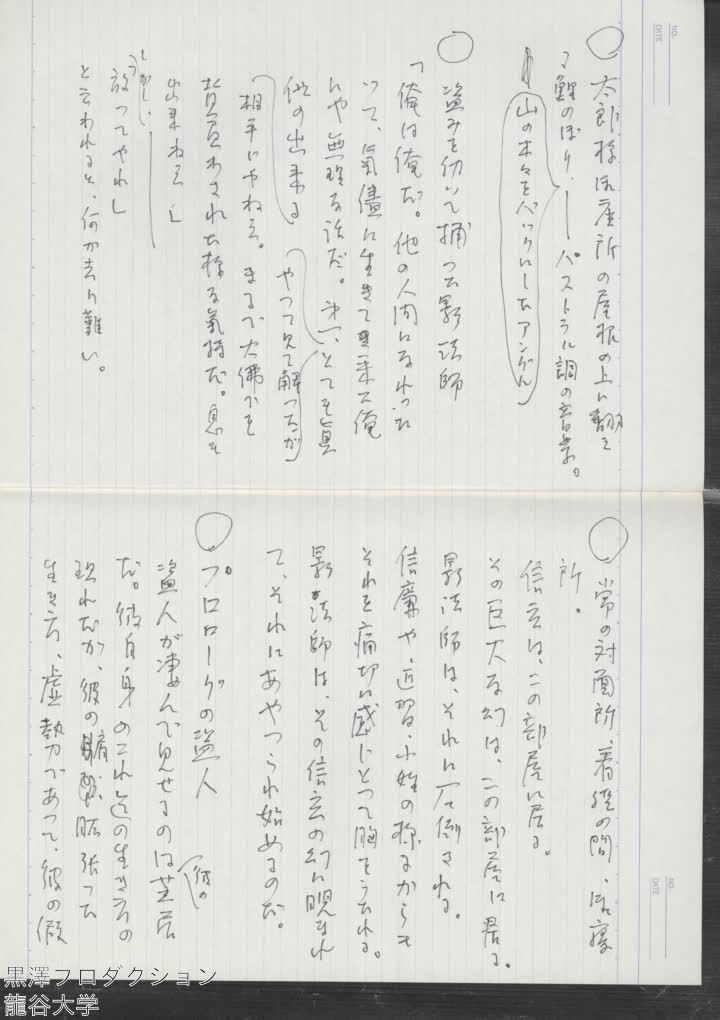 ○ 太郎様御座所の屋根の上に翻る
鯉のぼり!― パストラル調の音楽。
(山の木々をバックにしたアングル)
○ 盗みを働いて捕った影法師
「俺は俺だ。他の人間になれったっ
て、気儘に生きて来た俺
にや無理な話だ。第一、とても真
似の出来る
(やって見て解ったが)
相手ぢやねえ。まるで大佛でも
背負わされた様な氣持だ。息も
出来ねえ」
しかし、―
「放ってやれ」
と言われると、何か去り難い。
○ 常の対面所、看経の間、御寝
所。
信玄は、この部屋に居る。
その巨大な幻は、この部屋に居る。
影法師は、それに圧倒される。
信廉や、近習、小姓の様子からも
それを痛切に感じとって胸をうたれる。
影法師は、その信玄の幻に睨まれ
て、それにあやつられ始めるのだ。
○ プロローグの盗人
盗人が凄んで見せるのは芝居
だ。彼自身のこれ迄の生き方の
現れだが、彼の(彼の)臂張った
生き方、虚勢であって、彼の假
NO.
DATE
NO.
DATE
黒澤プロダクション
龍谷大学